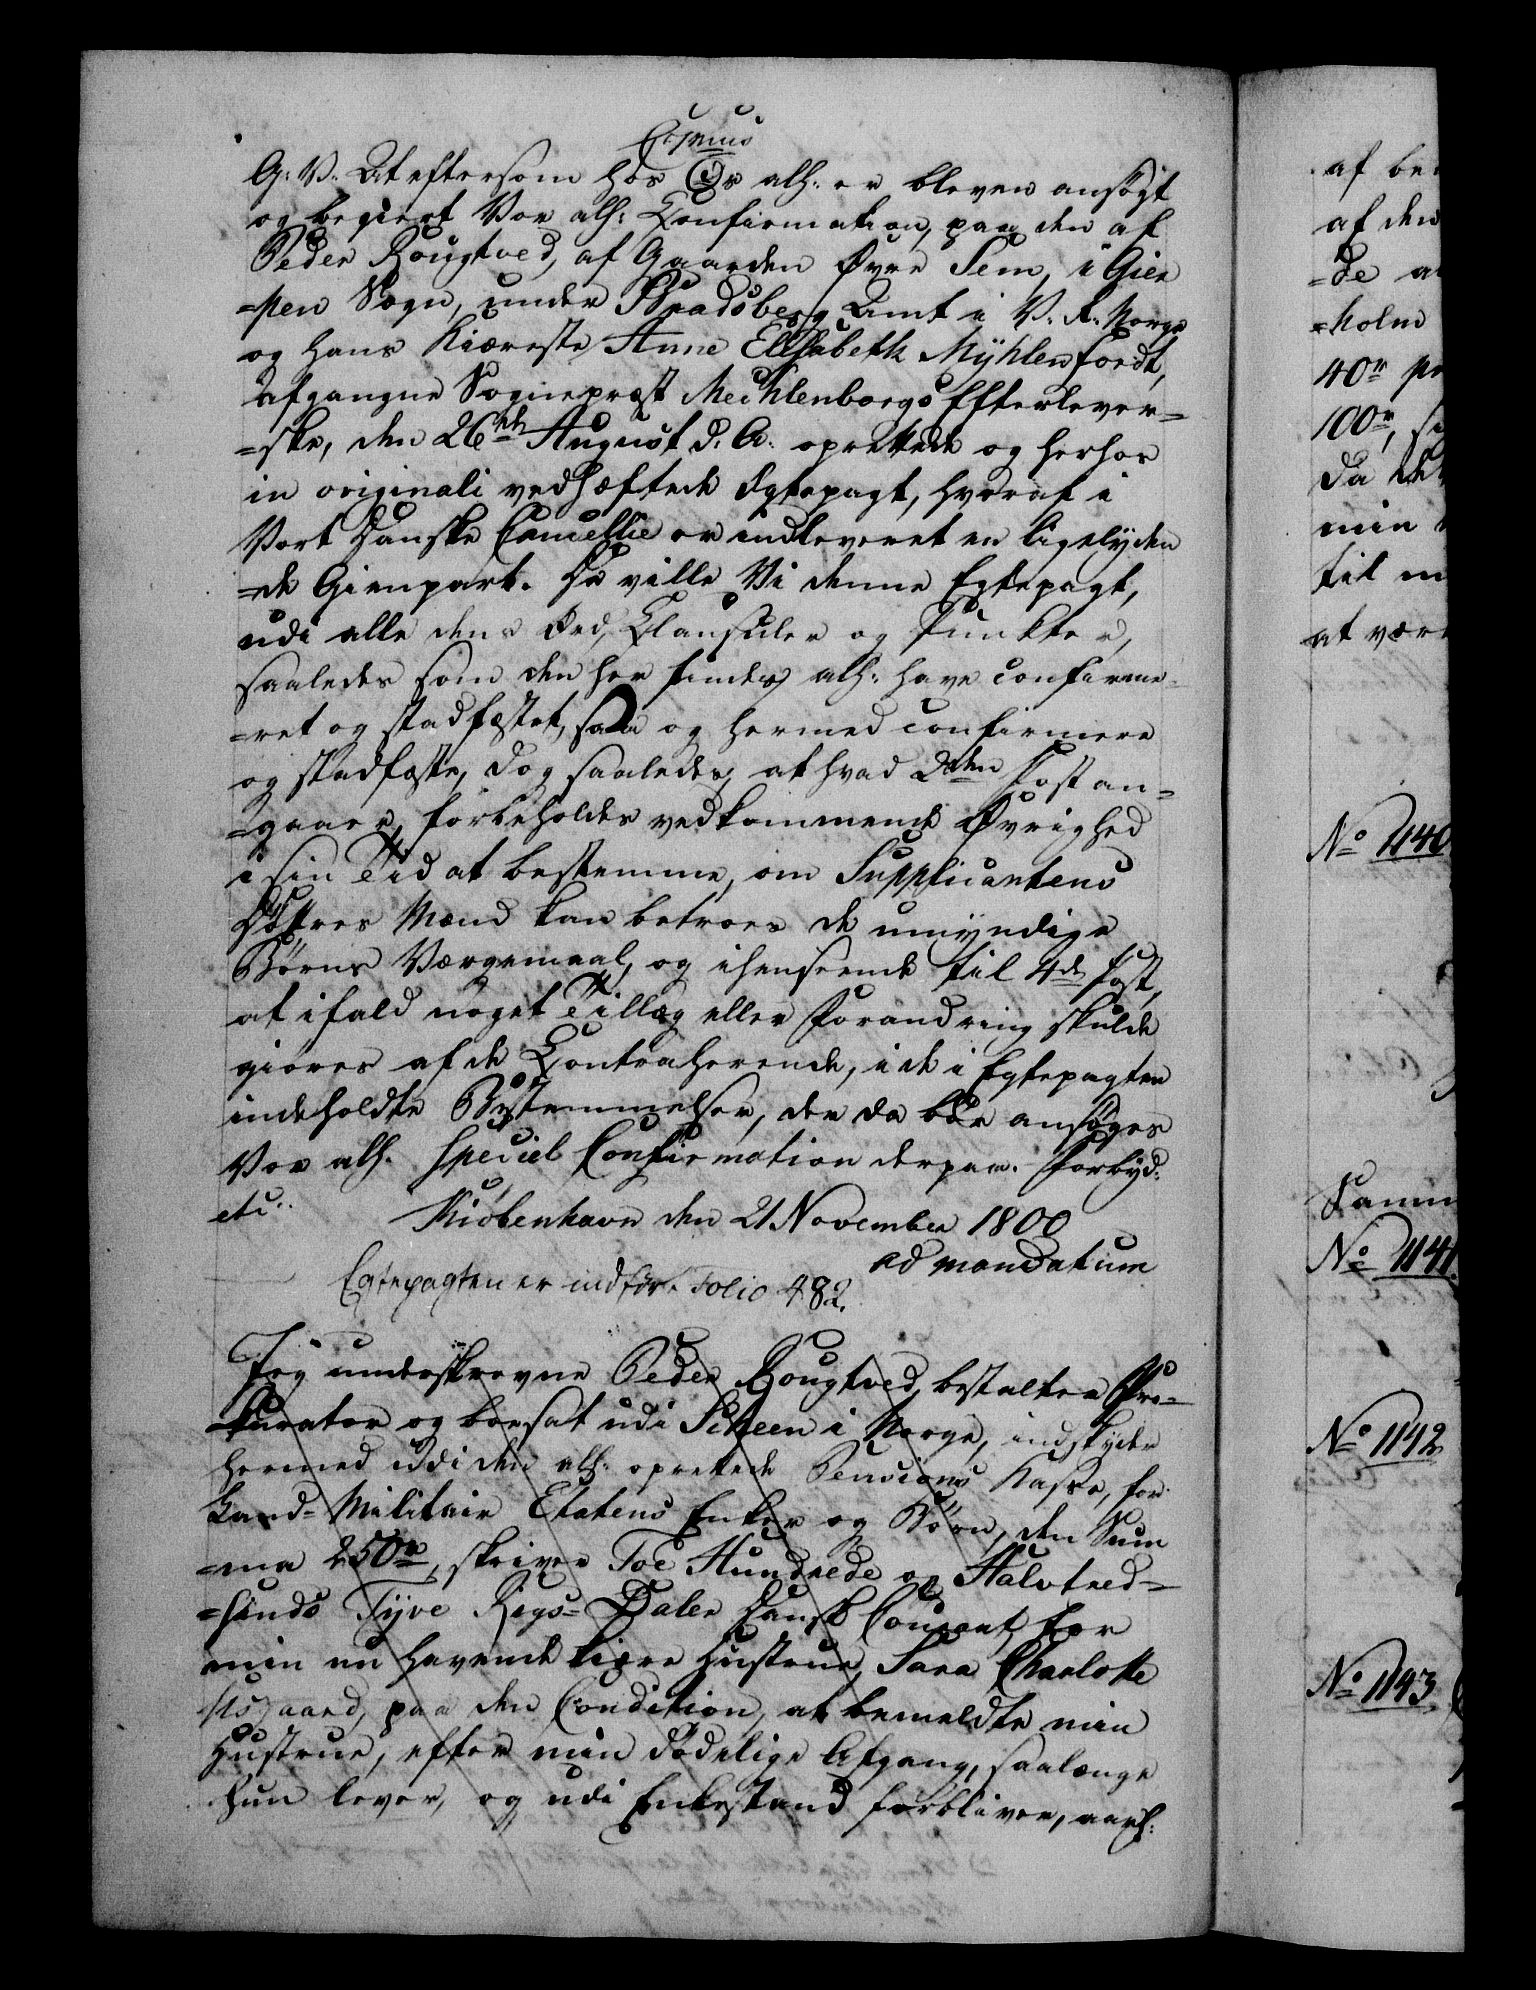 G: V: At eftersom hos Os alh: er bleven ansögt
og begiert Vor alh: Confirmation, paa den af
Peder Rougtved, af Gaarden Øvre Sem, i Gier
=pen Sogn, under Bradsberg Amt i V. R. Norge
og hans Kiæreste Anne Elisabeth Mÿhlenfordt,
afgangne Sognepræst Mechlenborgs Efterlever=
=ske, den 26de August d: A: oprettede og herhos
in originali vedhæftede Egtepagt, hvoraf i
Vort danske Cancellie er indleveret en ligelyden
=de Gienpart. Da ville Vi denne Egtepagt,
udi alle dens Ord, Clausuler og Punkter,
saaledes som den her findes, alh: have confirme=
=ret og stadfæstet, saa og hermed confirmere
og stadfæste, dog saaledes, at hvad 2den Post an=
=gaaer, forbeholdes vedkommende Øvrighed
i sin Tid at bestemme, om Supplicantens
Døttres Mænd kan betroes de umyndige
Börns Værgemaal, og ihenseende til 4de Post,
at ifald noget Tillæg eller Forandring skulde
giøres af de Contraherende, i de i Egtepagten
indeholdte Bestemmelser, der da bør ansøges
Vor alh. speciel Confirmation derpaa. Forbyd:
etc:
Kiöbenhavn den 21 November 1800
ad mandatum
Egtepagten er indført Folio 482.
Jeg underskrevne Peder Rougtved, bestalter Pro=
=curator og boesat udi Scheen i Norge, indskyder
hermed udi den alh: oprettede Pensions Kasse, for
Land=Militair Etatens Enker og Börn, den Sum
=ma 250rd, skriver Toe Hundrede og Halvtred=
=sinds Tyve Rigs=Daler Dansk Courant for
min nu havende kiære Hustrue, Sara Charlotte
aard, paa den Condition, at bemeldte min
Hustrue, efter min dödelige Afgang, saalænge
hun lever, og udi Enkestand forbliver, aarl:
af
af den
=de
=holm
40rd
100rd,
da
min
til
at være
No 1140
No 1141.
No 1142
No 1143